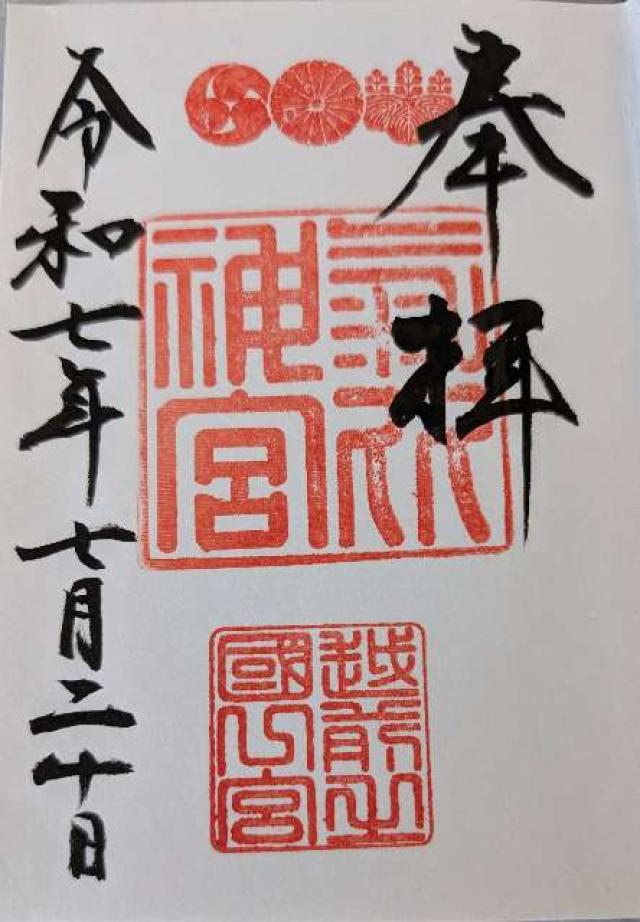 奉拝
氣比
神宮
越前之
國一宮
令和七年七月二十日